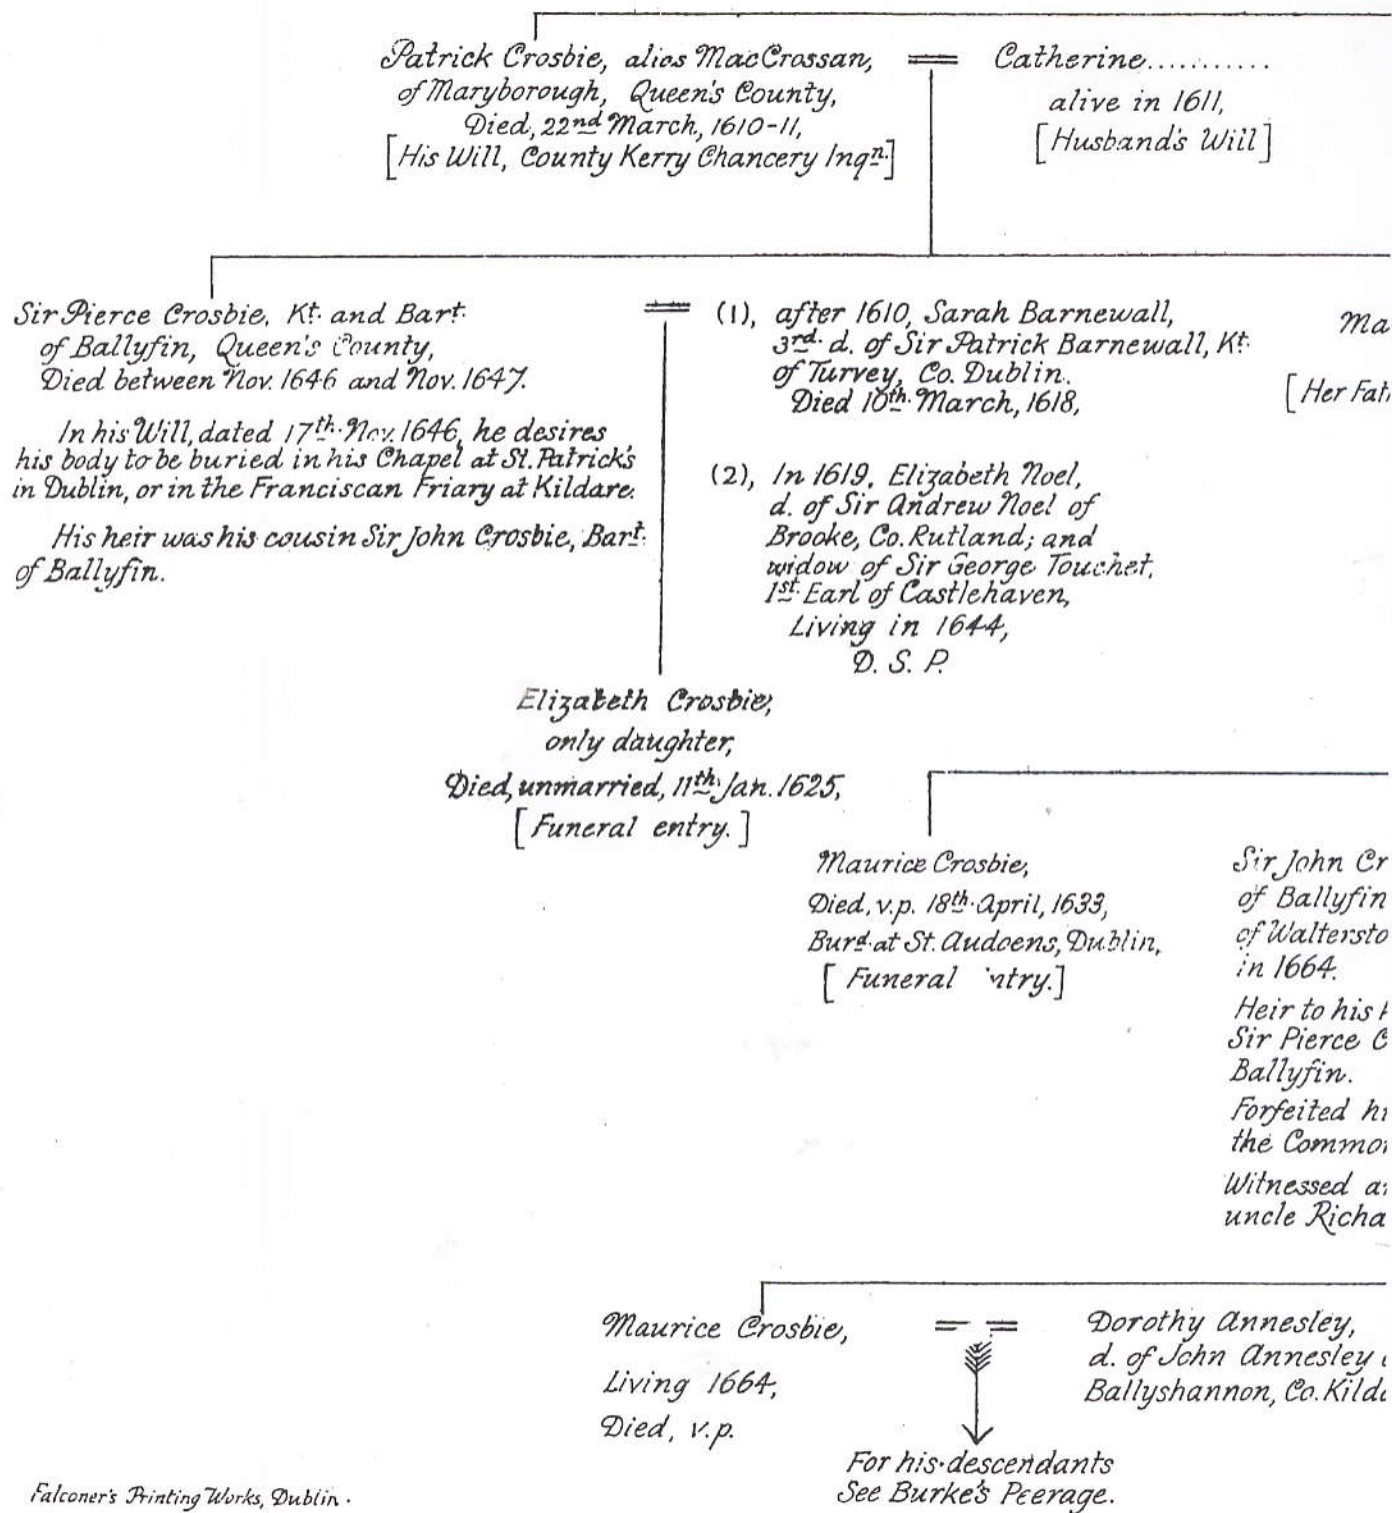 Patrick Crosbie, alias MacCrossan,
of Maryborough, Queen's County,
Died, 22nd March, 1610-11,
[His Will, County Kerry Chancery Inqn.]
Catherine...........
alive in 1611,
[Husband's Will]
Sir Pierce Crosbie, Kt. and Bart.
of Ballyfin, Queen's County,
Died between Nov. 1646 and Nov. 1647.
In his Will, dated 17th. Nov. 1646, he desires
his body to be buried in his Chapel at St. Patrick's
in Dublin, or in the Franciscan Friary at Kildare.
His heir was his cousin Sir John Crosbie, Bart.
of Ballyfin.
(1), after 1610, Sarah Barnewall,
3rd. d. of Sir Patrick Barnewall, Kt.
of Turvey, Co. Dublin.
Died 10th. March, 1618,
(2), In 1619, Elizabeth Noel,
d. of Sir Andrew Noel of
Brooke, Co. Rutland; and
widow of Sir George Touchet,
1st. Earl of Castlehaven,
Living in 1644,
D. S. P.
Ma
[Her Fath
Elizabeth Crosbie,
only daughter,
Died, unmarried, 11th. Jan. 1625,
[Funeral entry.]
Maurice Crosbie,
Died, v.p. 18th. April, 1633,
Burd. at St. Audoens, Dublin,
[Funeral ntry.]
Sir John Cr
of Ballyfin
of Waltersto
in 1664.
Heir to his
Sir Pierce C
Ballyfin.
Forfeited hi
the Common
Witnessed a
uncle Richa
Maurice Crosbie,
Living 1664,
Died, v.p.
Dorothy Annesley,
d. of John Annesley
Ballyshannon, Co. Kilda
For his descendants
See Burke's Peerage.
Falconer's Printing Works, Dublin.